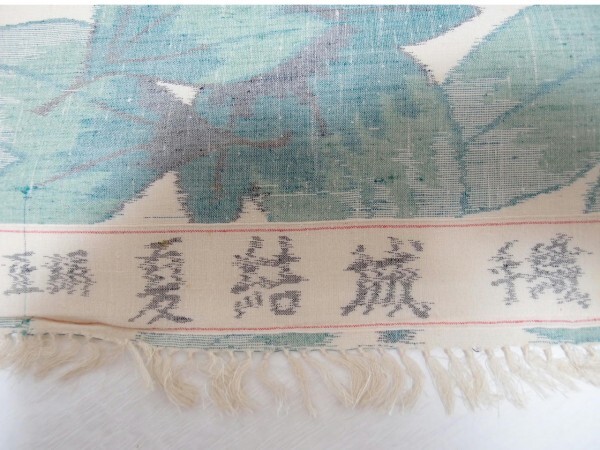 夏結城織